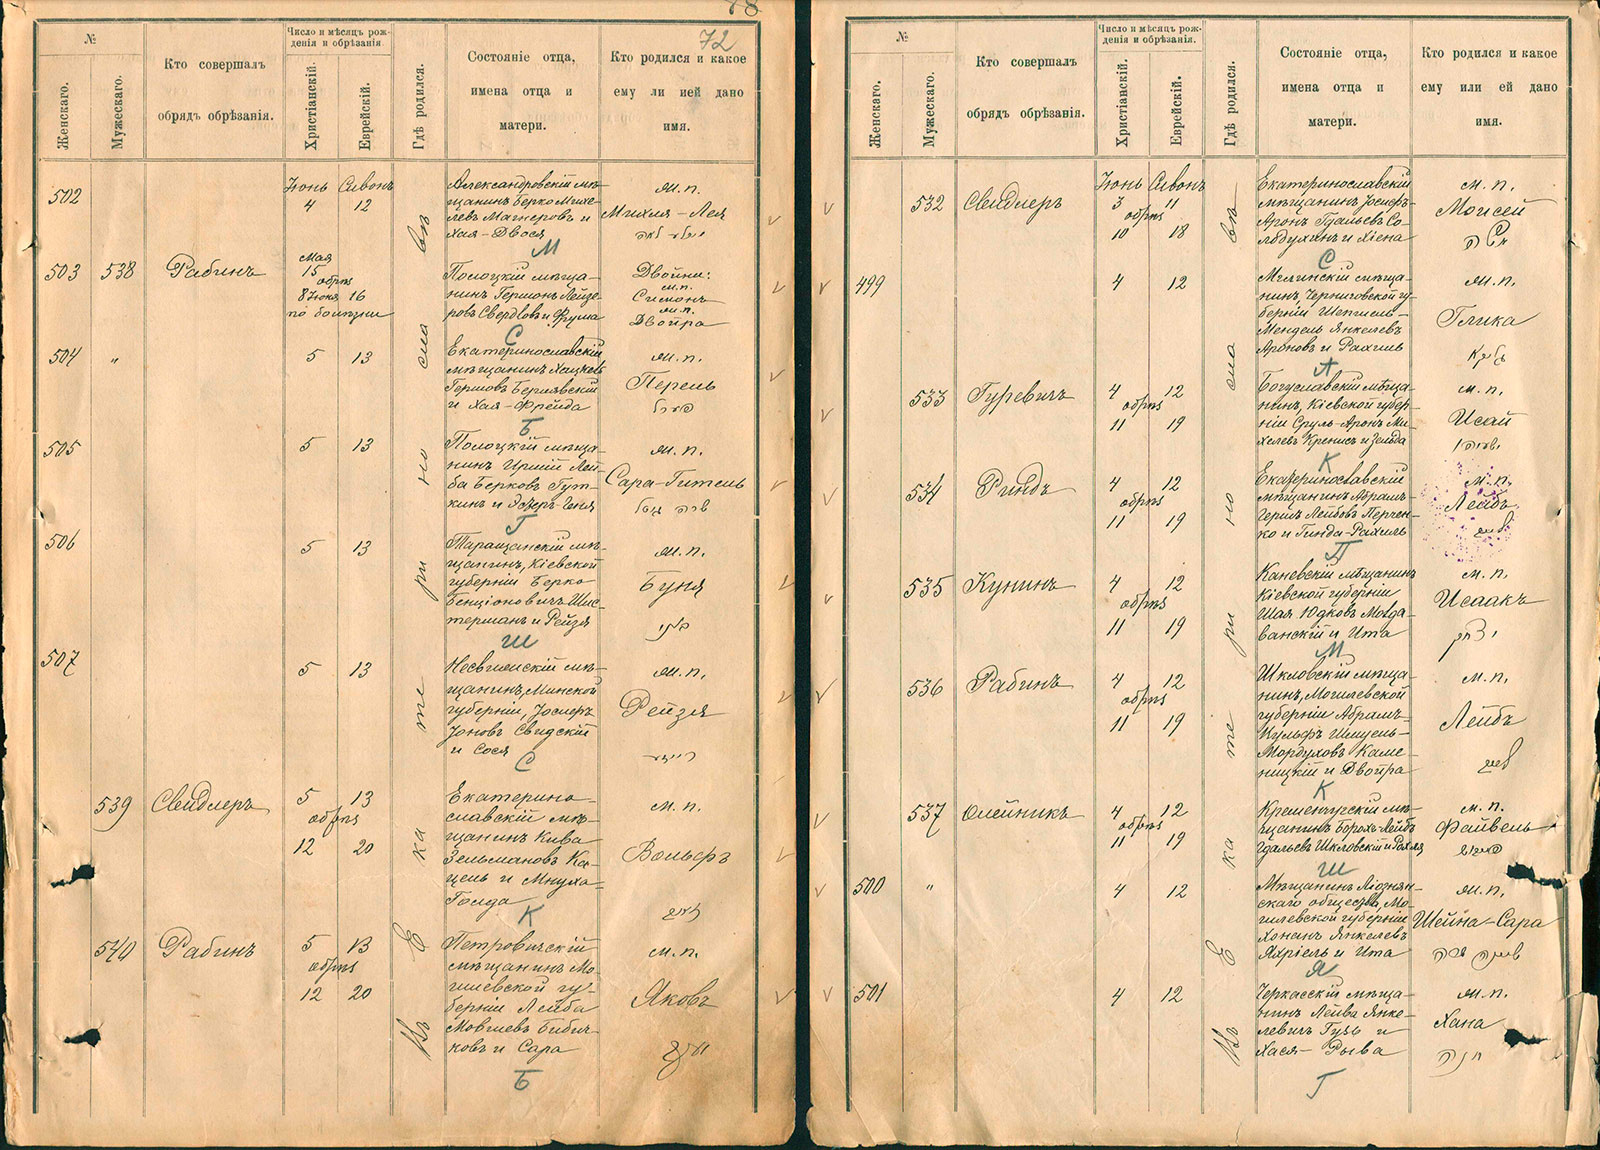 78
72
№
Женскаго.
Мужескаго.
Кто совершалъ
обрядъ обрѣзанія.
Число и мѣсяцъ рож-
денія и обрѣзанія.
Христіанскій.
Еврейскій.
Гдѣ родился.
Состояніе отца,
имена отца и
матери.
Кто родился и какое
ему ли ией дано
имя.
Въ Екатеринославѣ
502
Іюнь Сивонъ
4 12
Александровскій мѣ-
щанинъ Берко Михе-
левъ Магнеровъ и
Хая-Двося
М
м.п.
Михля-Лея
503 538 Рабинъ
Мая
15
обрѣз
8 Іюня 16
по болѣзни
Полоцкій мѣща-
нинъ Гершонъ Лейзе-
ровъ Свердловъ и Фрума
С
Двойни:
м.п.
Симонъ
м.п.
Двойра
504 "
5 13
Екатеринославскій
мѣщанинъ Хацкель
Гершовъ Берлявскій
и Хая-Фрейда
Б
м.п.
Перель
פערל
505
5 13
Полоцкій мѣща-
нинъ Иршій Лей-
ба Берковъ Гут-
кинъ и Эстеръ-Геня
Г
м.п.
Сара-Гитель
שרה גיטל
506
5 13
Таращанскій мѣ-
щанинъ, Кіевской
губерніи Берко
Бенціоновичъ Шис-
терманъ и Рейзя
Ш
м.п.
Буня
507
5 13
Несвижскій мѣ-
щанинъ, Минской
губерніи, Іосифъ
Іоновъ Свидскій
и Сося
С
м.п.
Рейзя
539 Свидлеръ
5 13
обрѣз
12 20
Екатерино-
славскій мѣ-
щанинъ Кива
Зельмановъ Ка-
цель и Мнуха-
Голда
К
м.п.
Вольфъ
540 Рабинъ
5 13
обрѣз
12 20
Петровичскій
мѣщанинъ Мо-
гилевской гу-
берніи Лейба
Мовшевъ Бибич-
ковъ и Сара
Б
м.п.
Яковъ
יעקב
№
Женскаго.
Мужескаго.
Кто совершалъ
обрядъ обрѣзанія.
Число и мѣсяцъ рож-
денія и обрѣзанія.
Христіанскій.
Еврейскій.
Гдѣ родился.
Состояніе отца,
имена отца и
матери.
Кто родился и какое
ему или ей дано
имя.
Въ Екатеринославѣ
532 Свидлеръ
Іюнь Сивонъ
3 11
обрѣз
10 18
Екатеринославскій
мѣщанинъ Іосифъ-
Аронъ Гдальевъ Со-
лодухинъ и Хіена
С
м.п.
Моисей
משה
499
4 12
Мглинскій мѣща-
нинъ, Черниговской гу-
берніи Шепшель-
Мендель Янкелевъ
Ароновъ и Рахиль
А
м.п.
Глика
גליקא
533 Гуревичъ
4 12
обрѣз
11 19
Богуславскій мѣща-
нинъ, Кіевской губер-
ніи Сруль-Аронъ Ми-
хелевъ Кренисъ и Зельда
К
м.п.
Исай
ישעיהו
534 Риндъ
4 12
обрѣз
11 19
Екатеринославскій
мѣщанинъ Абрамъ-
Гершъ Лейбовъ Перчен-
ко и Гинда-Рахиль
П
м.п.
Лейбъ
לייב
535 Кунинъ
4 12
обрѣз
11 19
Каневскій мѣщанинъ
Кіевской губерніи
Шая Юдковъ Молда-
ванскій и Ита
М
м.п.
Исаакъ
יצחק
536 Рабинъ
4 12
обрѣз
11 19
Шкловскій мѣща-
нинъ, Могилевской
губерніи Абрамъ-
Кульфъ Шмуель-
Мордуховъ Каме-
ницкій и Двойра
К
м.п.
Лейбъ
לייב
537 Олейникъ
4 12
обрѣз
11 19
Кременчугскій мѣ-
щанинъ Борохъ-Лейбъ
Гдальевъ Шкловскій и Рахля
Ш
м.п.
Файвель
פייוויש
500 "
4 12
Мѣщанинъ Ліознян-
скаго общества, Мо-
гилевской губерніи
Хонанъ Янкелевъ
Яхріель и Ита
Я
м.п.
Шейна-Сара
שיינה שרה
501
4 12
Черкасскій мѣща-
нинъ Лейва Янке-
левичъ Гузь и
Хася-Рыва
Г
м.п.
Хана
חנה